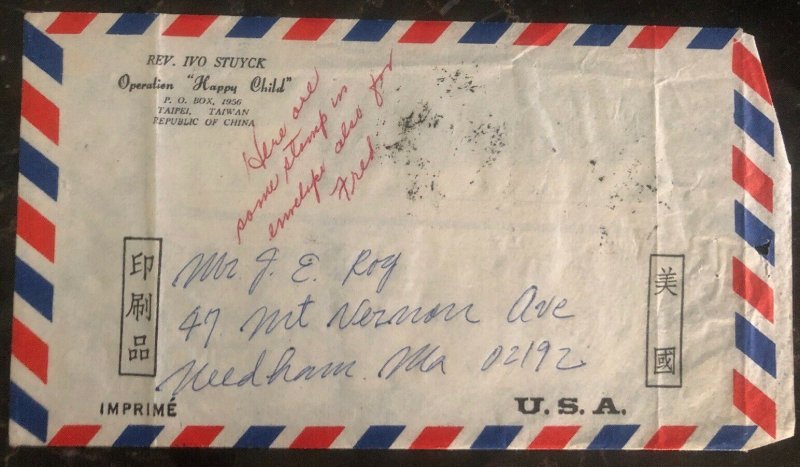 REV. IVO STUYCK
Operation "Happy Child"
P. O. BOX, 1956
TAIPEI, TAIWAN
REPUBLIC OF CHINA
Here are
some stamp in
envelope also for
Fred
Mr J. E. Roy
47 Mt Vernon Ave
Needham Ma 02192
印刷品
美國
IMPRIMÉ
U. S. A.